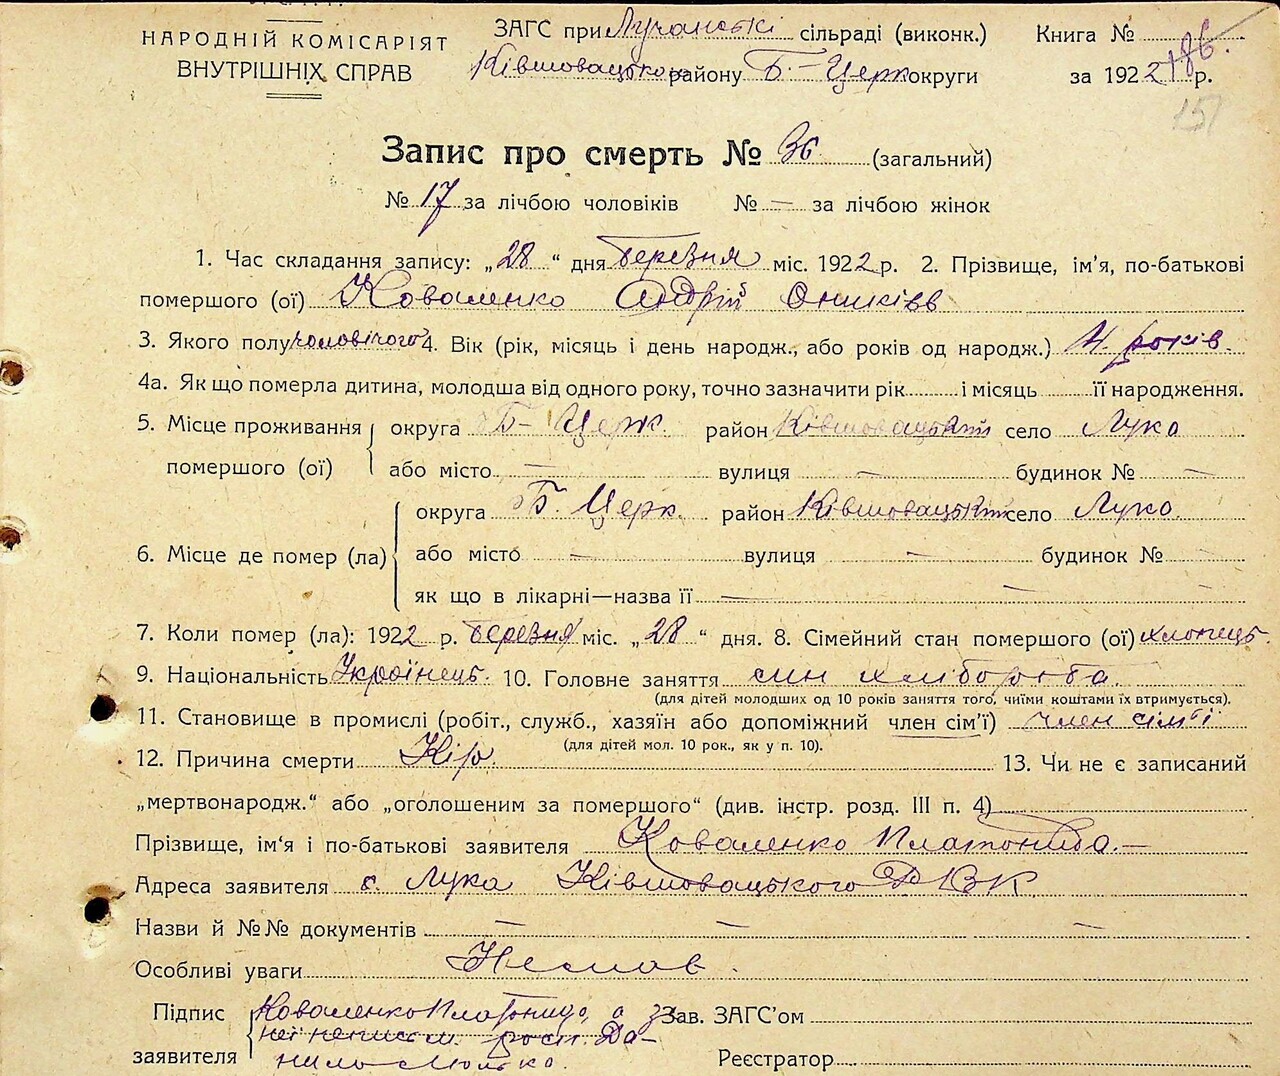 НАРОДНІЙ КОМІСАРІЯТ
ВНУТРІШНІХ СПРАВ
ЗАГС при Лучанські сільраді (виконк.) Книга №
Ківшовацького району Б.-Церк округи за 1922 р.
186.
157
Запис про смерть № 36 (загальний)
№ 17 за лічбою чоловіків № — за лічбою жінок
1. Час складання запису: „28“ дня березня міс. 1922 р. 2. Прізвище, ім’я, по-батькові
помершого (ої) Коваленко Андрій
3. Якого полу чоловічого 4. Вік (рік, місяць і день народж., або років од народж.) років
4а. Як що померла дитина, молодша від одного року, точно зазначити рік і місяць її народження.
5. Місце проживання округа Б-Церк. район Ківшовацький село Лука
помершого (ої) або місто — вулиця — будинок № —
округа Б. Церк. район Ківшовацький село Лука
6. Місце де помер (ла) або місто — вулиця — будинок № —
як що в лікарні—назва її — — —
7. Коли помер (ла): 1922 р. березня міс. „28“ дня. 8. Сімейний стан помершого (ої) хлопець
9. Національність Українець. 10. Головне заняття син хлібороба
(для дітей молодших од 10 років заняття того, чиїми коштами їх втримується).
11. Становище в промислі (робіт., служб., хазяїн або допоміжний член сім’ї) член сім’ї
(для дітей мол. 10 рок., як у п. 10).
12. Причина смерти Кір. 13. Чи не є записаний
„мертвонародж.“ або „оголошеним за помершого“ (див. інстр. розд. III п. 4)
Прізвище, ім‘я і по-батькові заявителя Коваленко Платонида.—
Адреса заявителя с. Лука Ківшовацького РВК
Назви й №№ документів — — —
Особливі уваги Немає.
Підпис Коваленко Платонида, а за Зав. ЗАГС’ом
неї неписьм. росп. Да-
заявителя нило Реєстратор